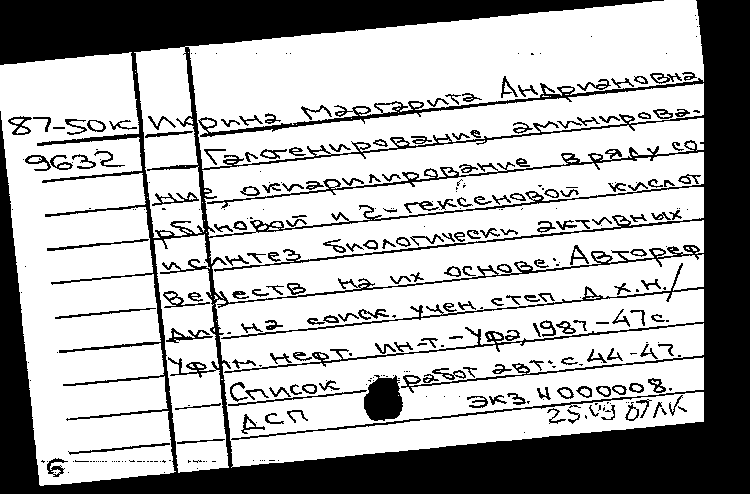 87-50к Икрина, Маргарита Андриановна
9632 Галогенирование, аминирова-
ние, окиарилирование в ряду со-
рбиновой и 2-гексеновой кислот
и синтез биологически активных
веществ на их основе: Автореф
дис. на соиск. учен. степ. д.х.н./
Уфим. нефт. ин-т. - Уфа, 1987. - 47с.
Список работ авт: с. 44-47.
ДСП экз. N 000008.
87 ЛК
6